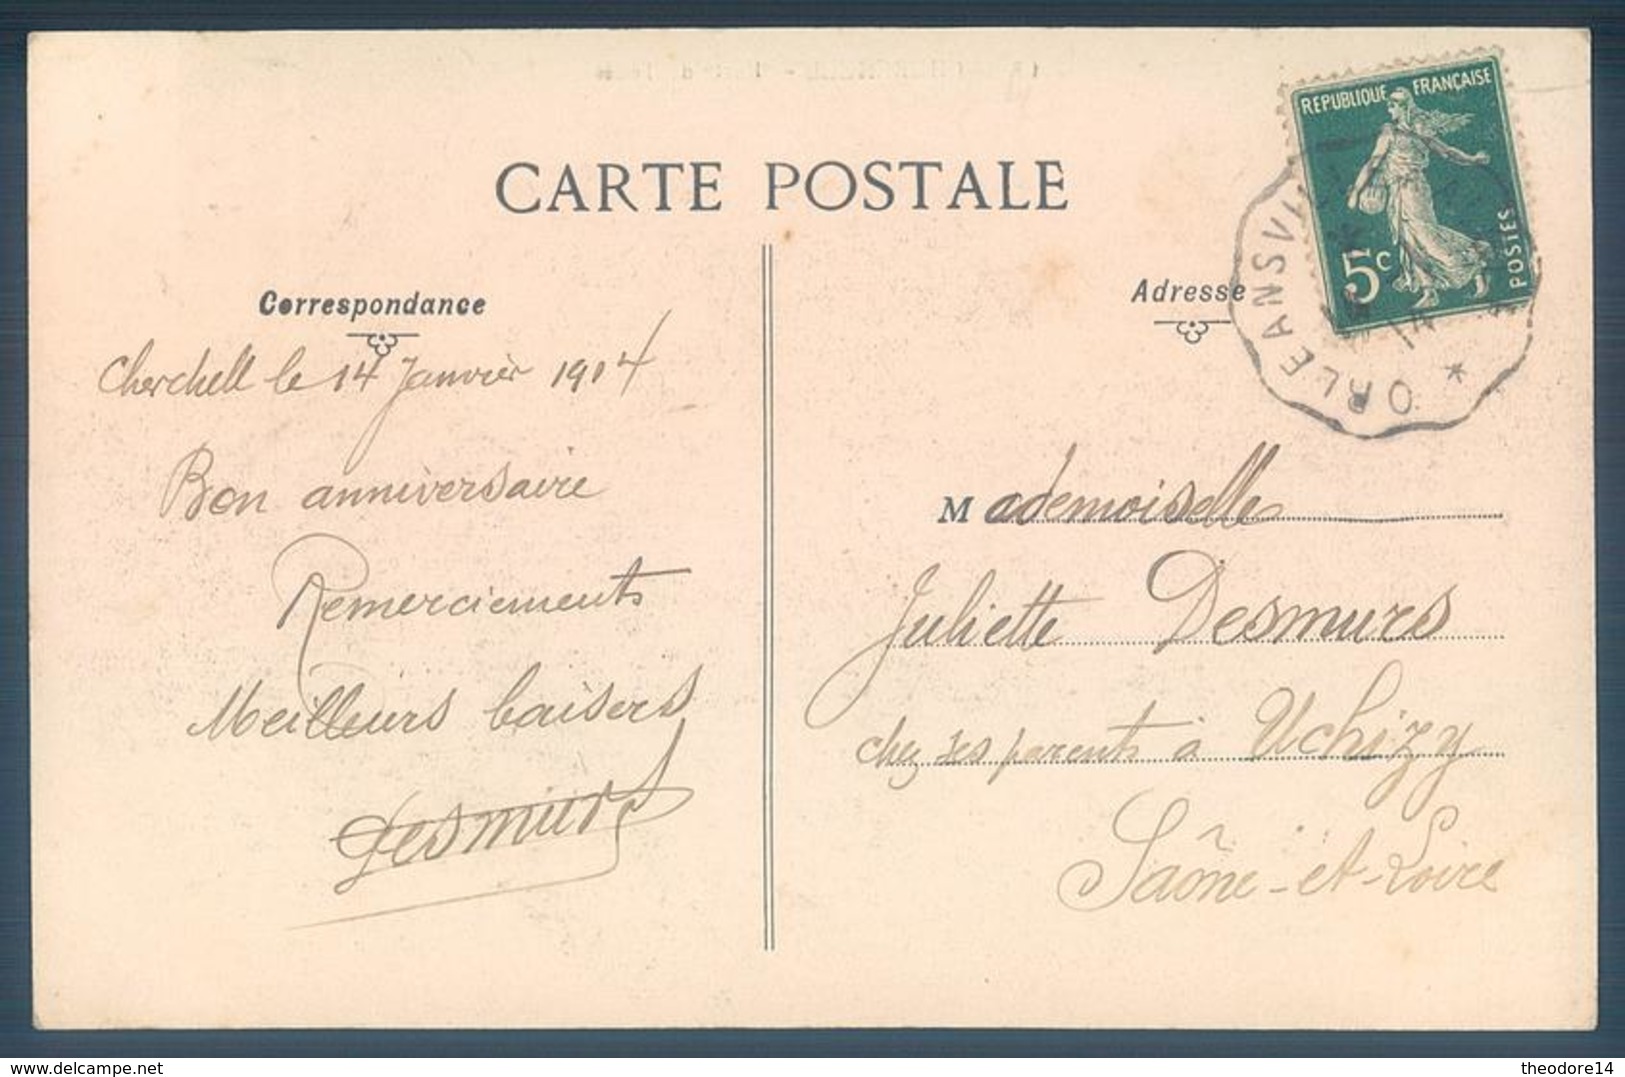 CARTE POSTALE
Correspondance
Cherchell le 14 Janvier 1914
Bon anniversaire
Remerciements
Meilleurs baisers
Desmurs
REPUBLIQUE FRANÇAISE
5c
POSTES
* ORLEANSVI
Adresse
Mademoiselle
Juliette Desmurs
chez ses parents à Uchizy
Saône-et-Loire
www.delcampe.net
theodore14